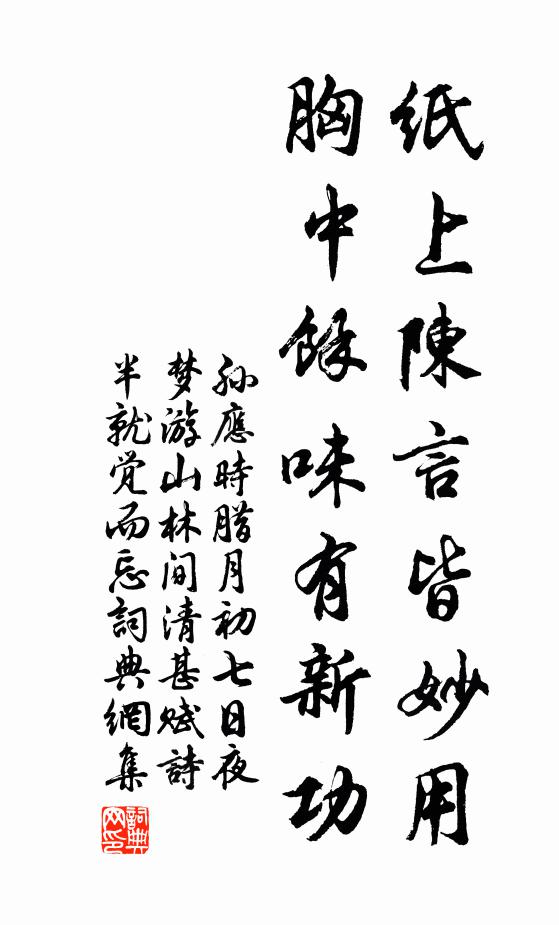 紙上陳言皆妙用
胸中餘味有新功
孙應時腊月初七日夜
梦游山林间清甚赋詩
半就觉而忘詞典網集
詞典
网印